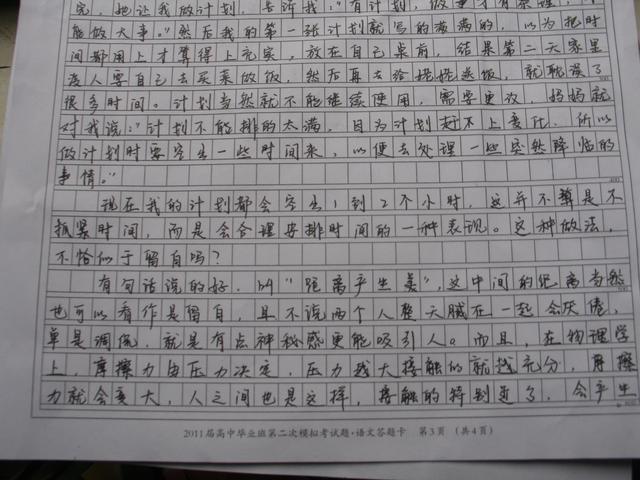 完，她让我做计划，告诉我："有计划，做事才有条理，才
能做大事。"然后我的第一张计划就写的满满的，以为把时
间都用上才算得上充实，放在自己桌前，结果第二天家里
没人要自己去买菜做饭，然后再去给姥姥送饭，就耽误了
很多时间。计划当然就不能继续使用，需要更改，妈妈就
对我说："计划不能排的太满，因为计划赶不上变化，所以
做计划时要空出一些时间来，以便去处理一些突然降临的
事情。"
现在我的计划都会空出1到2个小时，这并不算是不
抓紧时间，而是会合理安排时间的一种表现。这种做法，
不恰似于留白吗？
有句话说的好，叫"距离产生美"，这中间的距离当然
也可以看作是留白，且不说两个人整天腻在一起会厌倦，
单是调侃，就是有点神秘感更能吸引人。而且，在物理学
上，摩擦力由压力决定，压力越大接触的就越充分，摩擦
力就会变大，人之间也是这样，接触的特别近了，会产生
2011届高中毕业班第二次模拟考试题·语文答题卡 第3页 （共4页）